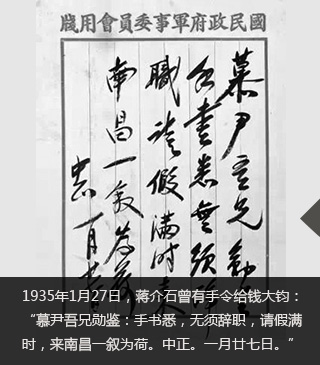 國民政府軍事委員會用牋
慕尹吾兄勛鑒
手書悉無須辞
職請假滿时来
南昌一叙為荷
中正 一月廿七
1935年1月27日，蒋介石曾有手令给钱大钧：
“慕尹吾兄勋鉴：手书悉，无须辞职，请假满
时，来南昌一叙为荷。中正。一月廿七日。”